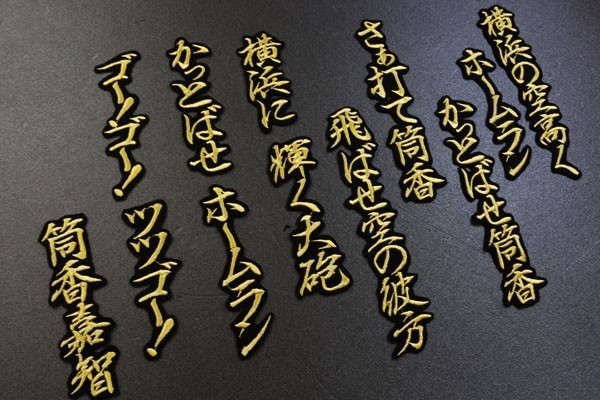 横浜の空高く
ホームラン
かっとばせ筒香
さぁ打て筒香
飛ばせ空の彼方
横浜に
輝く大砲
かっとばせ
ホームラン
ゴー!ゴー!
ツツゴー!
筒香嘉智